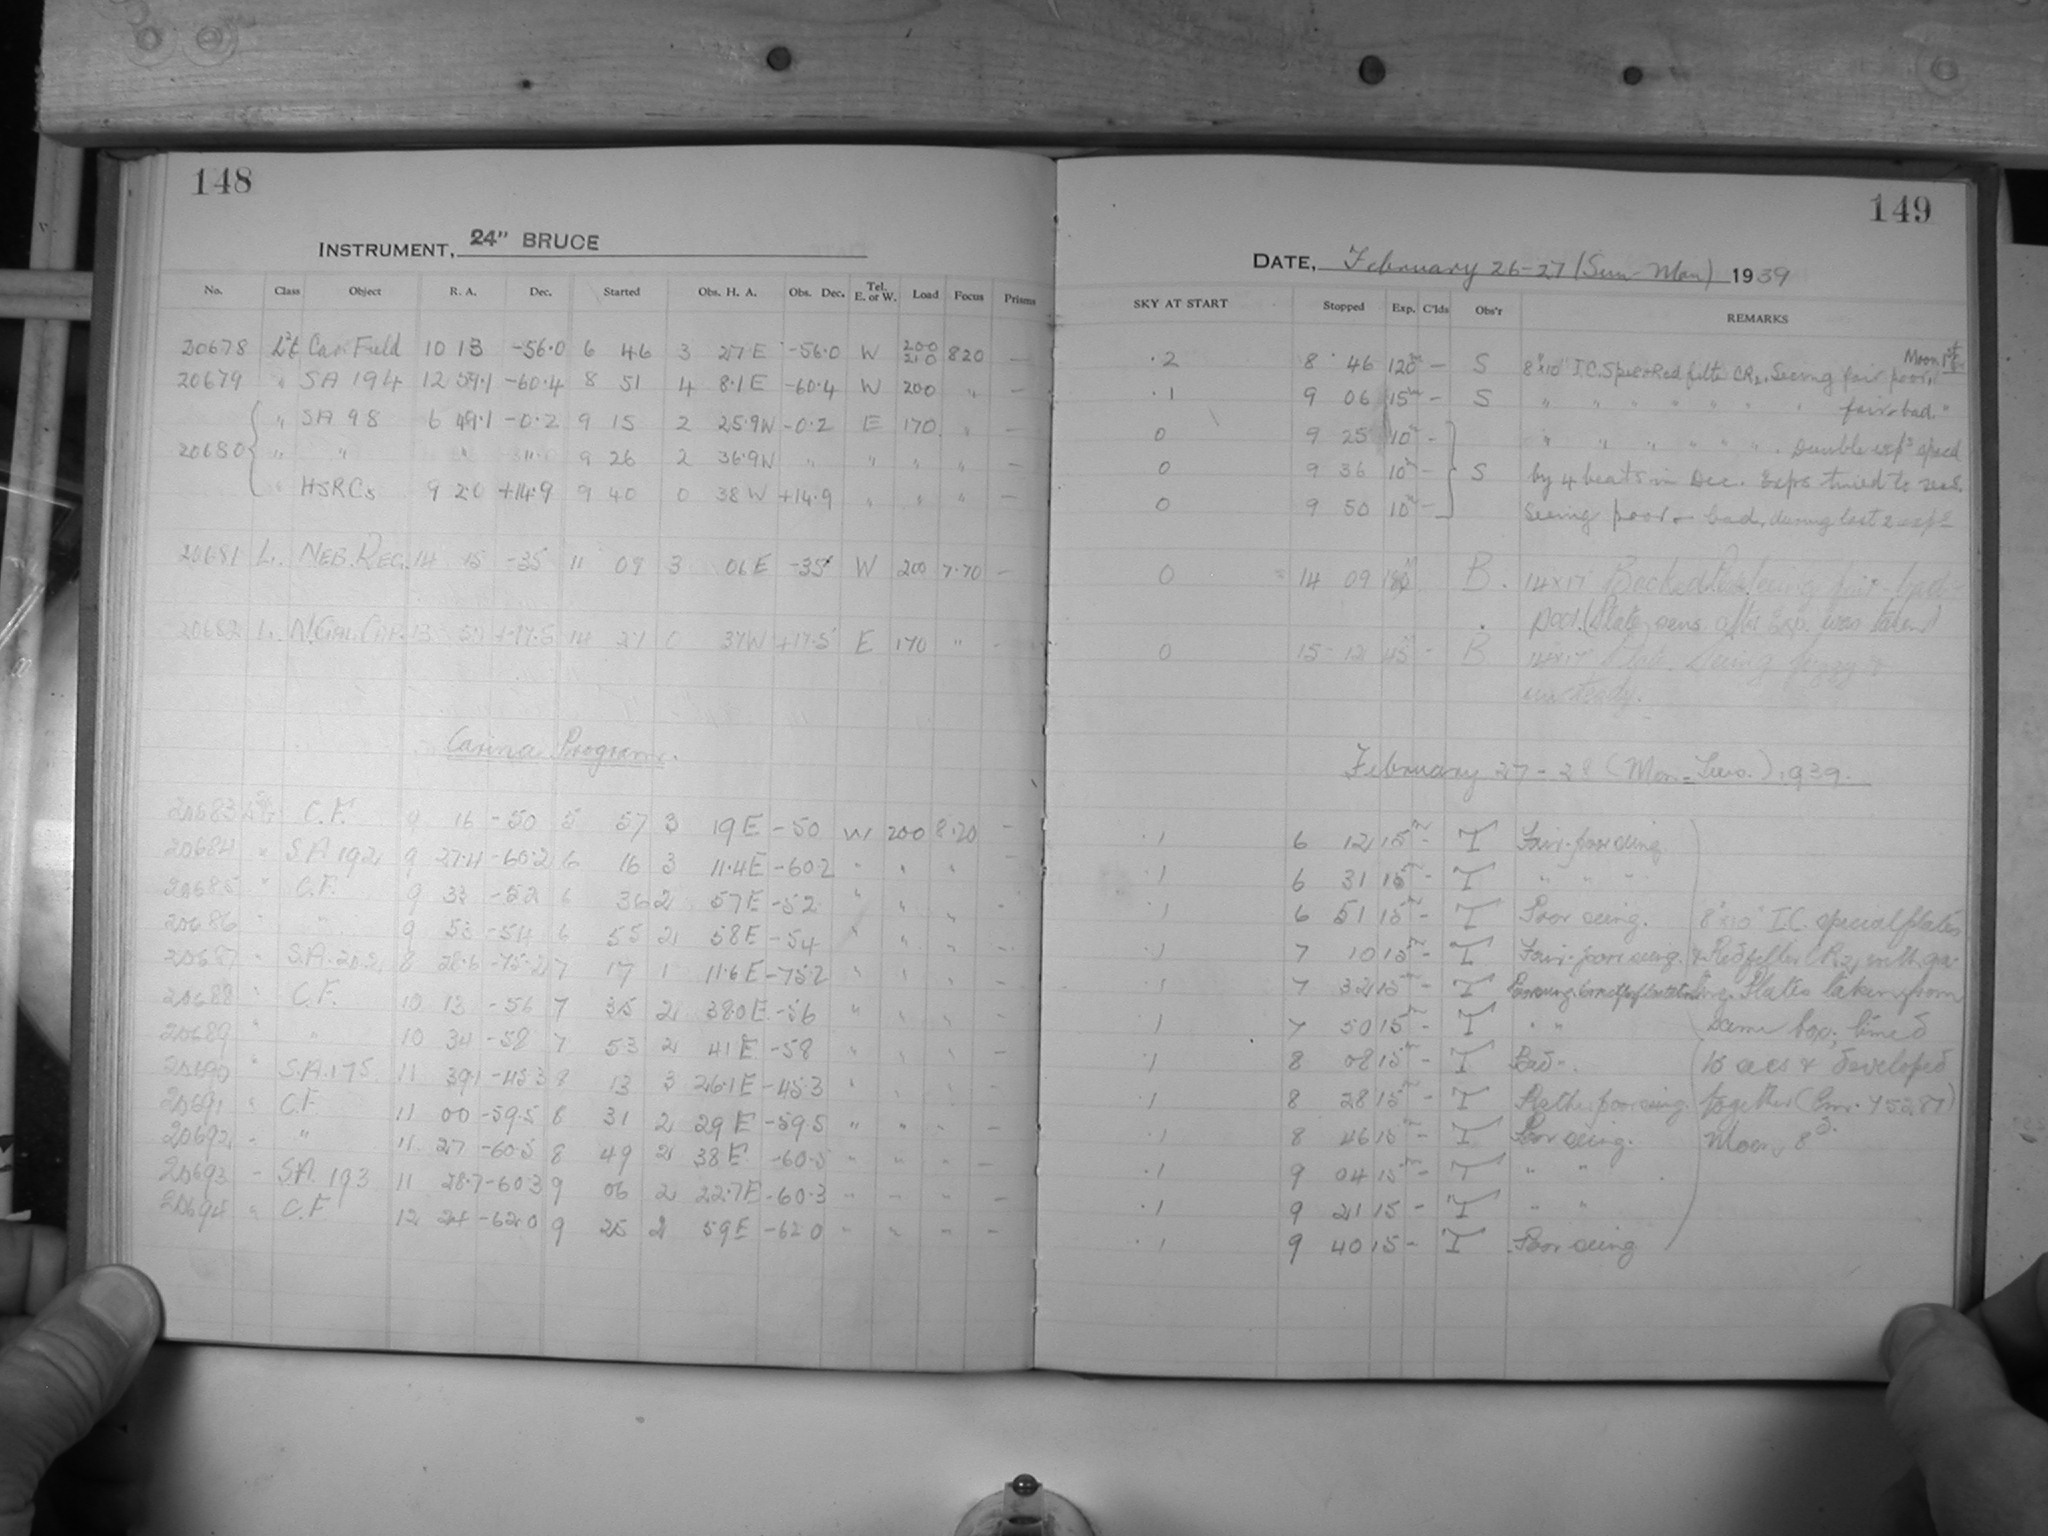 148
INSTRUMENT, 24" BRUCE
No. Class Object R. A. Dec. Started Obs. H. A. Obs. Dec. Tel. E. or W. Load Focus Prisms
20678 Car. Field 10 13 -56.0 6 46 3 27 E -56.0 W 200 210 820 —
20679 " SA 194 12 59.1 -60.4 8 51 4 8.1 E -60.4 W 200 " —
" SA 98 6 49.1 -0.2 9 15 2 25.9W -0.2 E 170 " —
20680 " " " " 9 26 2 36.9W " " " " —
" HSRCs 9 2.0 +14.9 9 40 0 38 W +14.9 " " " —
20681 L. NEB. REG. 14 15 -35 11 09 3 06 E -35 W 200 7.70 —
20682 L. N. GAL. CAP. 13 +17.5 14 27 0 37W +17.5 E 170 " -
Carina Program.
20683 C.F. 9 16 -50 5 57 3 19 E -50 W 200 8.20 —
20684 " S.A 192 9 27.4 -60.2 6 16 3 11.4E -60.2 " " " —
20685 " C.F. 9 33 -52 6 36 2 57E -52 " " " —
20686 " " 9 53 -54 6 55 2 58E -54 " " " —
20687 " S.A. 202 8 28.6 -75.2 7 17 1 11.6 E -75.2 " " " —
20688 " C.F. 10 13 -56 7 35 2 38.0E -56 " " " —
20689 " " 10 34 -58 7 53 2 41 E -58 " " " —
20690 " S.A. 175 11 39.1 -45.3 8 13 3 26.1 E -45.3 " " " —
20691 " C.F. 11 00 -59.5 8 31 2 29 E -59.5 " " " —
20692 " " 11 27 -60.5 8 49 2 38 E -60.5 " " " —
20693 " S.A. 193 11 28.7 -60.3 9 06 2 22.7E -60.3 " " " —
20694 " C.F. 12 24 -62.0 9 25 2 59 E -62.0 " " " —
149
DATE, February 26-27 (Sun-Mon) 1939
SKY AT START Stopped Exp. C'lds Obs'r REMARKS
Moon 1st
.2 8 46 120m — S 8"x10" I.C. Spec. Red filter CR2. Seeing fair poor.
.1 9 06 15m — S " " " " " " fair-bad. "
0 9 25 10m — " " " " " " Double exps spaced
0 9 36 10m — S by 4 beats in Dec. Exps timed to secs.
0 9 50 10m — Seeing poor - bad, during last 2 exps
0 14 09 180 B. 14x17 Backed Plate. Seeing fair - bad
Pool. (Plate sens. after Exp. was taken)
0 15 12 45 - B 14x17 Plate. Seeing fuzzy &
unsteady.
February 27-28 (Mon-Tues.) 1939.
.1 6 12 15m - T Fair-poor seeing
.1 6 31 15m - T " " "
.1 6 51 15m - T Poor seeing. 8"x10" I.C. special plates
.1 7 10 15m - T Fair-poor seeing. & Red filter CR2, with gra-
.1 7 32 15m - T ting. Plates taken from
.1 7 50 15m - T " " same box; timed
.1 8 08 15m - T Bad - 15 secs & developed
.1 8 28 15m - T Rather poor seeing. together (Em. 45287)
.1 8 46 15m - T Poor seeing. Moon, 8d.
.1 9 04 15m - T " "
.1 9 21 15 - T " "
.1 9 40 15 - T Poor seeing